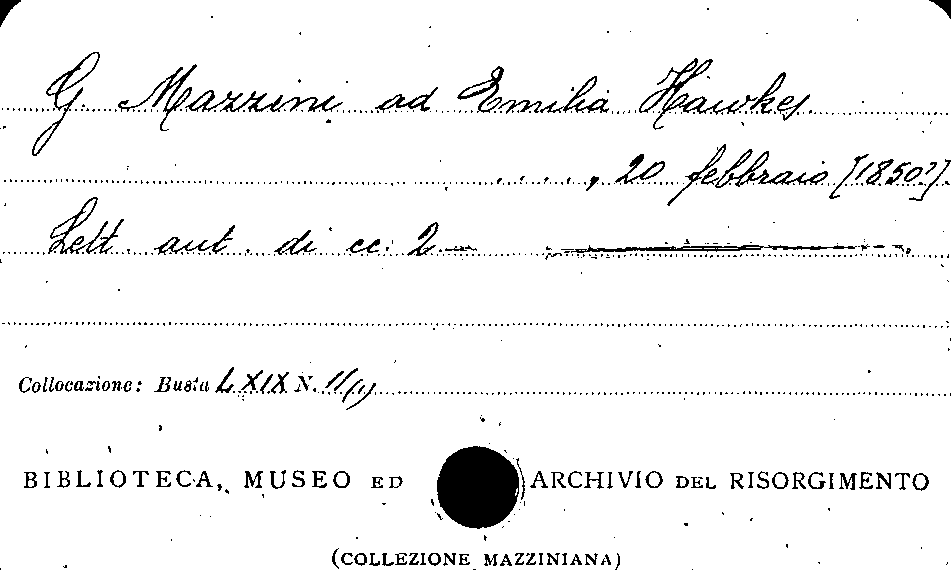 G. Mazzini ad Emilia Hawkes.
...., 20 febbraio [1850?].
Lett. aut. di cc. 2
Collocazione: Busta LXIX N. 11/(1)
BIBLIOTECA, MUSEO ED ARCHIVIO DEL RISORGIMENTO
(COLLEZIONE MAZZINIANA)